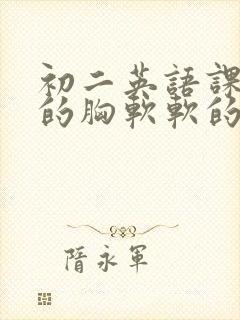 初二英語課
的胸軟軟的
隋永軍